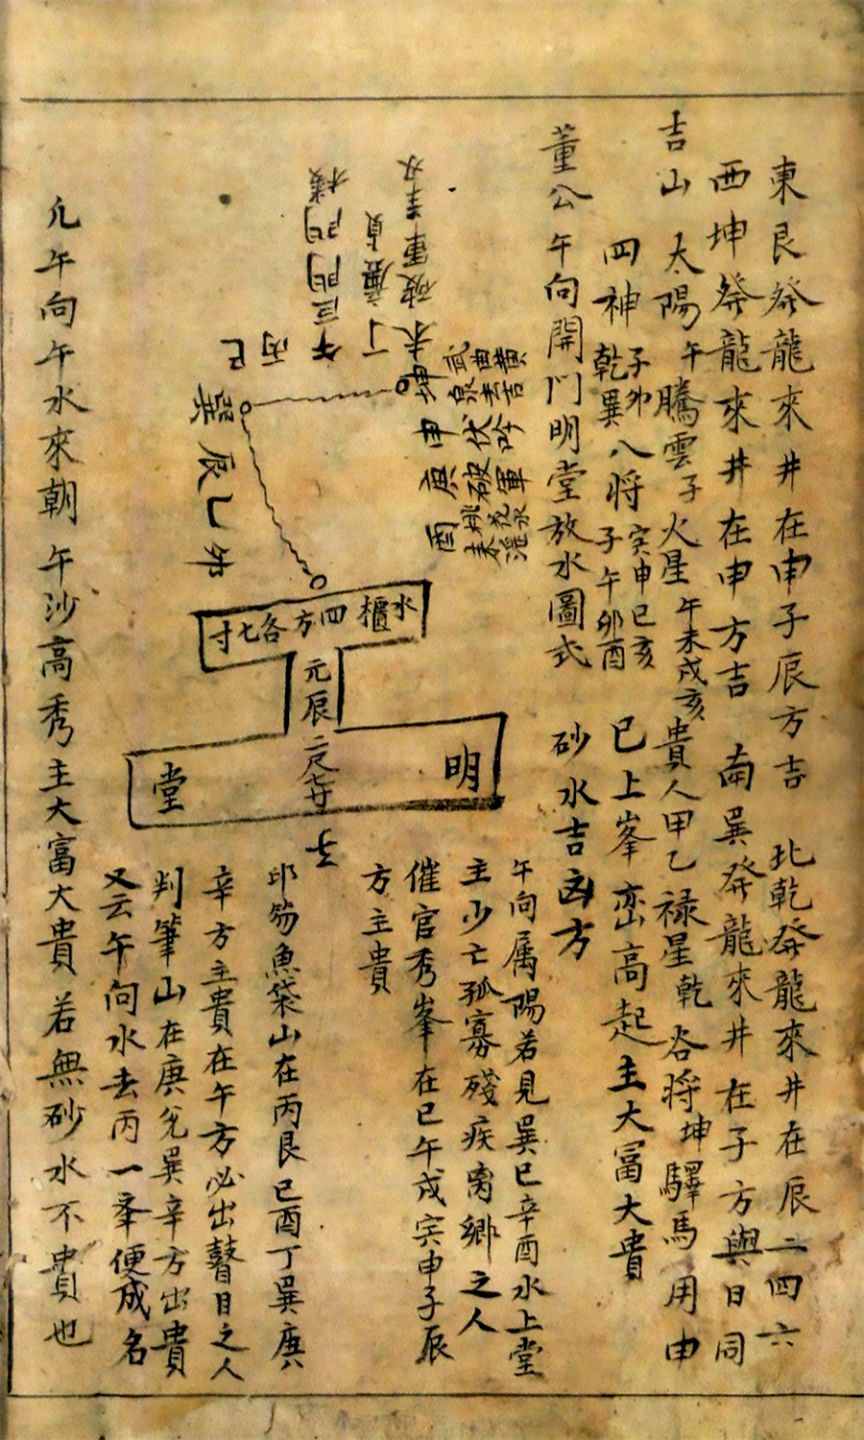 東艮發龍來井在申子辰方吉 北乾發龍來井在辰二四六
西坤發龍來井在申方吉 南巽發龍來井在子方與日同
吉山 太陽午 騰雲子 火星午未戌亥 貴人甲乙 禄星乾 谷将坤 驛馬用申
四神子卯乾巽 八将寅申巳亥子午卯酉 已上峯巒高起主大富大貴
董公午向開門明堂放水圖式 砂水吉凶方
午向属陽若見巽巳辛酉水上堂
主少亡孤寡殘疾离鄉之人
催官秀峯在巳午戌寅申子辰
方主貴
坤 未 丁 午 丙 巳
巽 辰 乙 卯
申 庚 酉
伏吟
破軍
水櫃四方各七寸
元辰二尺七寸
明堂
印笏魚袋山在丙艮巳酉丁巽庚
辛方主貴在午方必出瞽目之人
判筆山在庚兌巽辛方出貴
又云午向水去丙一峯便成名
凡午向午水來朝午沙高秀主大富大貴若無砂水不貴也